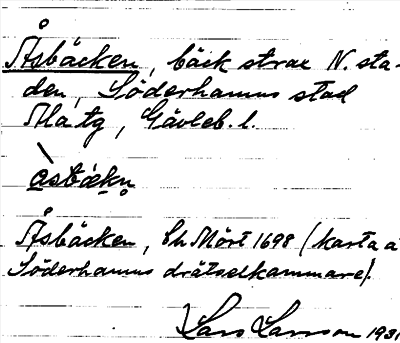 Åsbäcken, bäck strax N. sta-
den, Söderhamns stad
Ala tg, Gävleb. l.
Åsbäcken, Ch Mört 1698 (karta å
Söderhamns drätselkammare).
Lars Larsson 1931